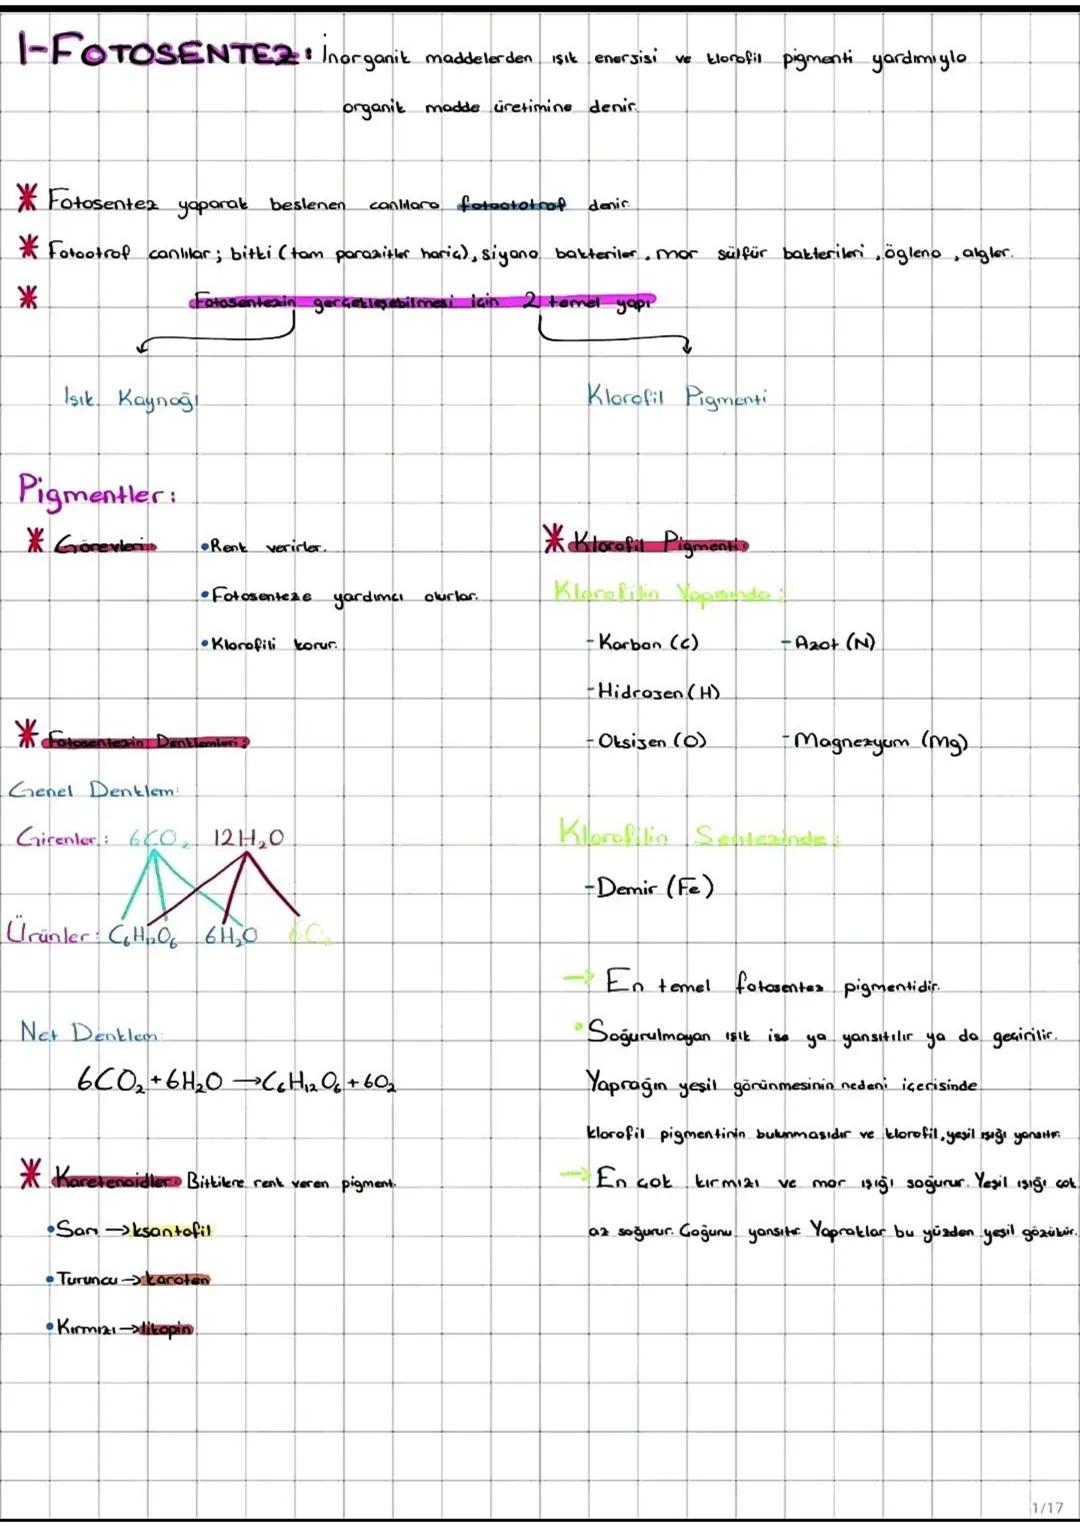 1-FOTOSENTEZ: İnorganik maddelerden ışık enerjisi ve klorofil pigmenti yardımıyla
organik madde üretimine denir.
* Fotosentez yaparak beslenen canlılara fotoototrof denir.
* Fotootrof canlılar; bitki (tam parazitler hariç), siyano bakteriler, mor sülfür bakterileri, öglena, algler.
* Fotosentezin gerçekleşebilmesi için 2 temel yapı
Işık Kaynağı
Klorofil Pigmenti
Pigmentler:
* Görevleri:
•Renk verirler.
•Fotosenteze yardımcı olurlar.
•Klorofili korur.
* Fotosentezin Denklemleri:
Genel Denklem:
Girenler: 6CO₂ 12H₂O
Ürünler: C₆H₁₂O₆ 6H₂O 6O₂
Net Denklem:
6CO₂+6H₂O →C₆H₁₂O₆+6O₂
* Karetenoidler: Bitkilere renk veren pigment.
•Sarı →ksantofil
•Turuncu→karoten
•Kırmızı→likopin
* Klorofil Pigmenti:
Klorofilin Yapısında:
-Karbon (C) -Azot (N)
-Hidrojen (H)
-Oksijen (O) -Magnezyum (Mg)
Klorofilin Sentezinde:
-Demir (Fe)
→ En temel fotosentez pigmentidir.
•Soğurulmayan ışık ise ya yansıtılır ya da geçirilir.
Yaprağın yeşil görünmesinin nedeni içerisinde
klorofil pigmentinin bulunmasıdır ve klorofil, yeşil ışığı yansıtır.
→ En çok kırmızı ve mor ışığı soğurur. Yeşil ışığı çok
az soğurur. Çoğunu yansıtır. Yapraklar bu yüzden yeşil gözükür.
1/17